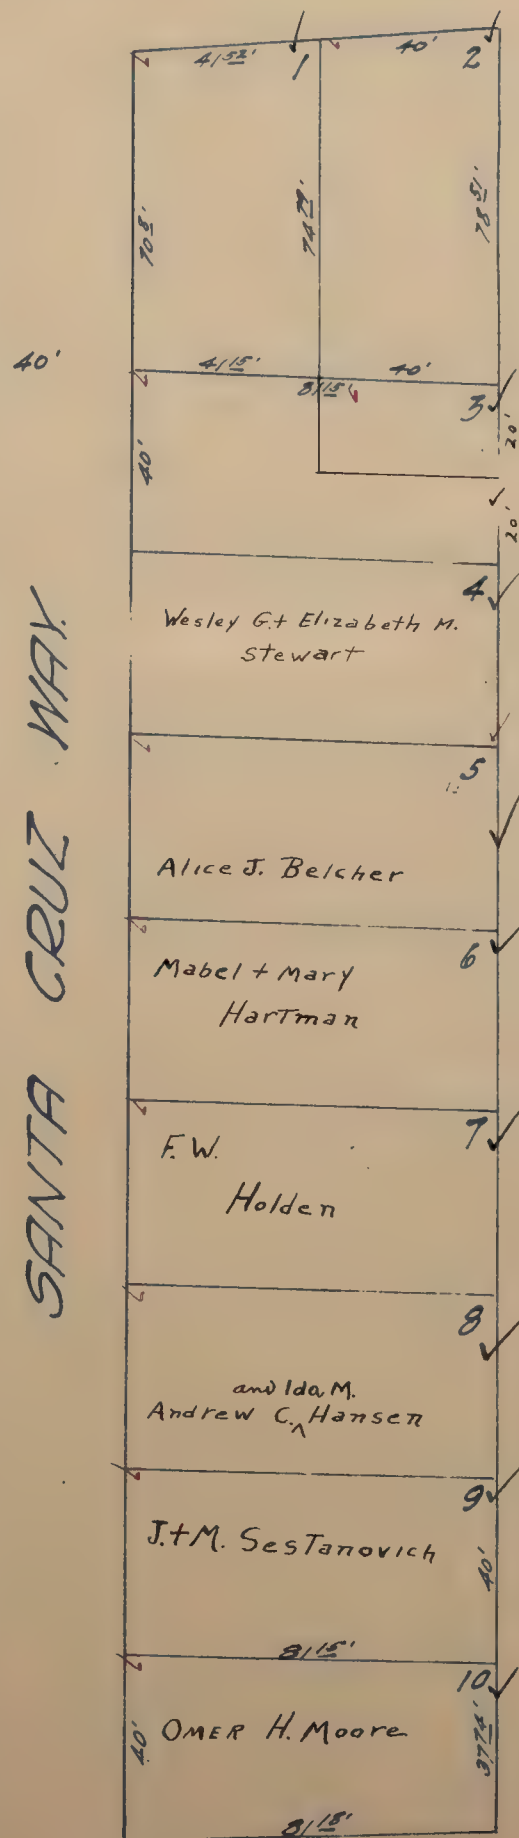 41 52'
1
40'
2
70 8'
74 79'
78 51'
40'
41 15'
81 15'
40'
3
20'
40'
20'
4
Wesley G. + Elizabeth M.
Stewart
5
Alice J. Belcher
6
Mabel + Mary
Hartman
7
F. W.
Holden
SANTA CRUZ WAY.
8
and Ida M.
Andrew C. ^ Hansen
9
J. + M. Sestanovich
40'
81 15'
10
40'
OMER H. Moore
81 18'